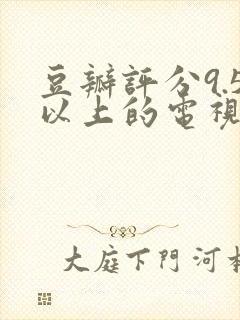 豆瓣評分9.5
以上的電視
大庭下門河